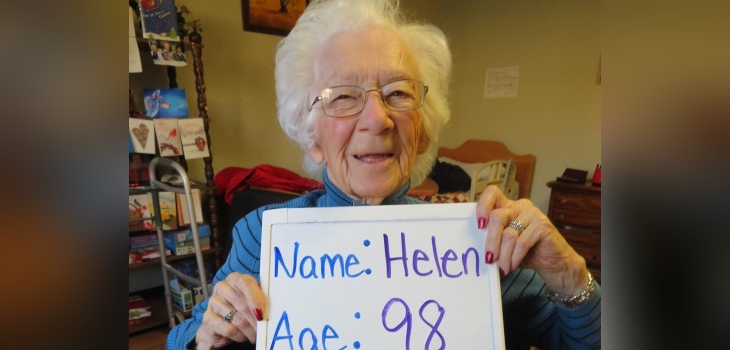 Name: Helen
Age: 98